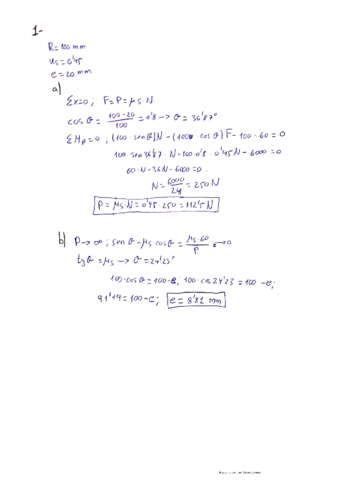 1-
R=100 mm
μs=0'45
e=20 mm
a)
Σx=0; F=P=μs·N
cos θ = (100-20)/100 = 0'8 → θ = 36'87°
ΣMA=0; (100·sen θ)N-(100·cos θ)F-100·60=0
100·sen 36'87·N-100·0'8·0'45N-6000=0
60·N-36N-6000=0
N=6000/24=250N
P=μs·N=0'45·250=112'5N
b) P→∞; sen θ-μs cos θ=μs·60/P→0
tg θ=μs → θ=24'23°
100·cos θ=100-e; 100 cos 24'23=100-e;
91'19=100-e; e=8'81 mm